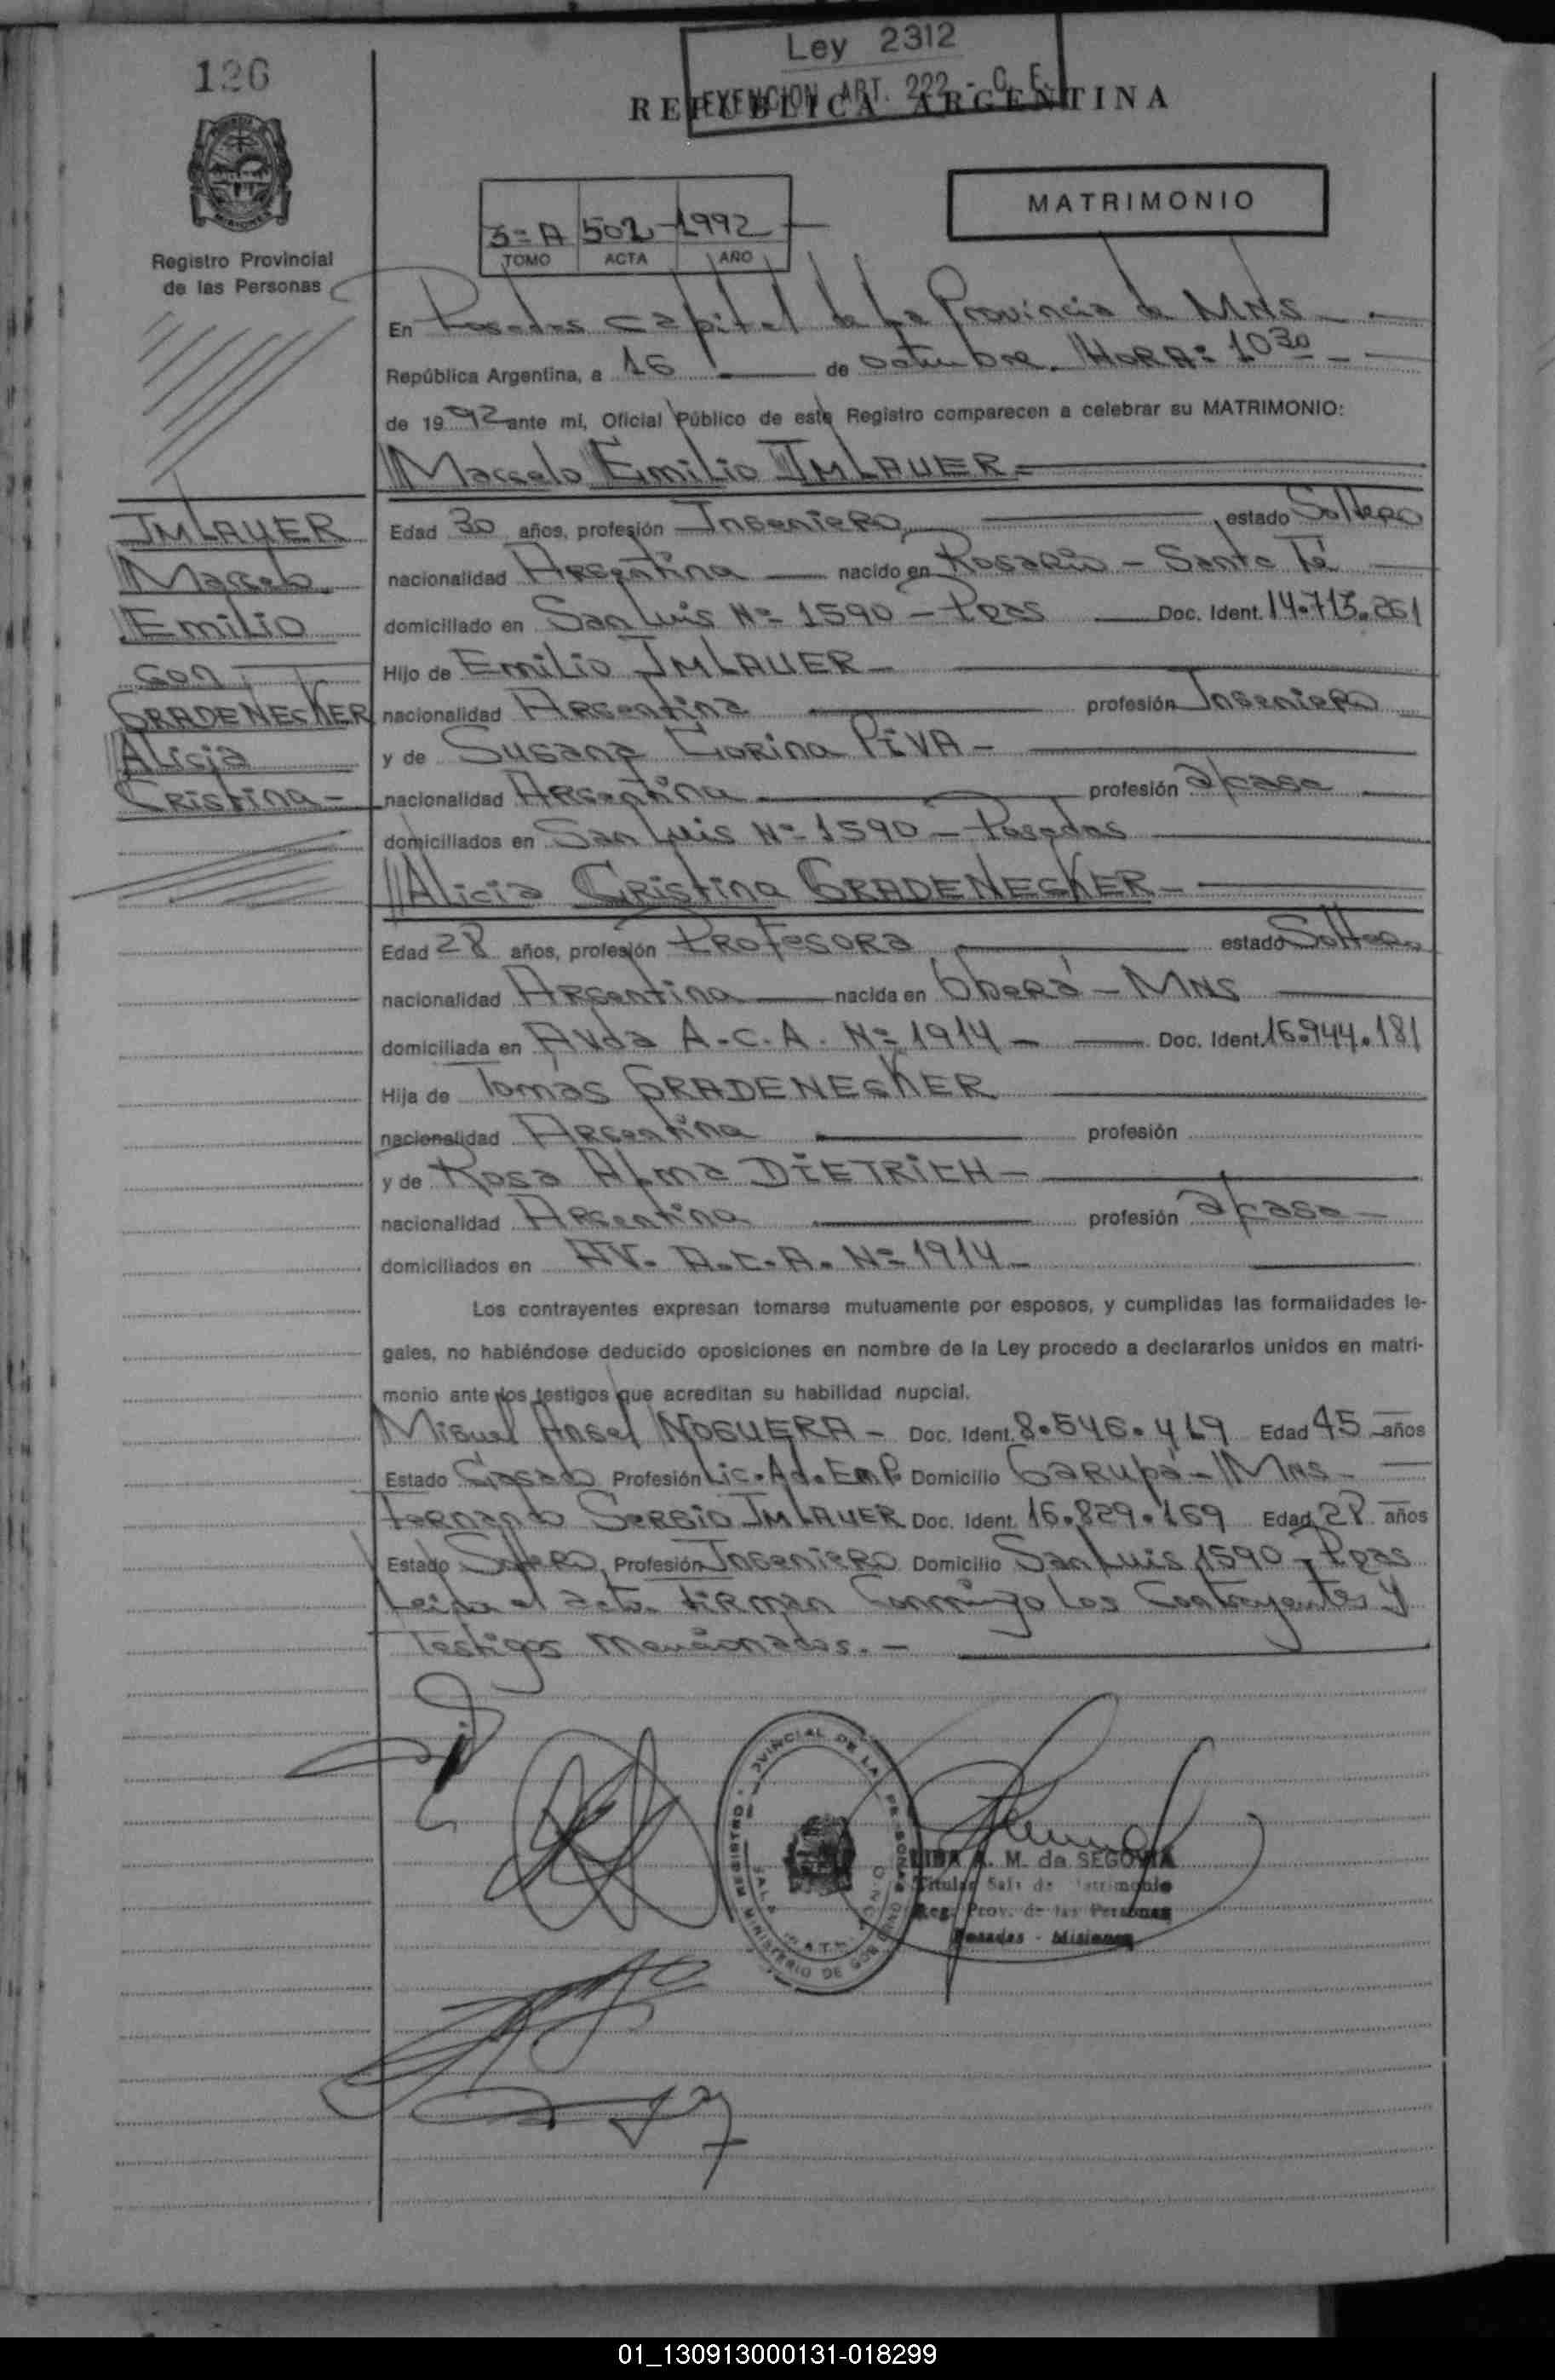 126
Ley 2312
EXENCION ART. 222 - C. F.
REPUBLICA ARGENTINA
MATRIMONIO
3=A 502 1992
TOMO ACTA AÑO
Registro Provincial
de las Personas
En Posadas capital de La Provincia de MNS
República Argentina, a 16 de octubre. HORA: 10 30
de 1992 ante mí, Oficial Público de este Registro comparecen a celebrar su MATRIMONIO:
Marcelo Emilio IMLAUER
IMLAUER
Marcelo
Emilio
con
GRADENECKER
Alicia
Cristina
Edad 30 años, profesión Ingeniero, estado Soltero
nacionalidad Argentina nacido en Rosario - Santa Fé
domiciliado en San Luis Nº 1590 - Pdas Doc. Ident. 14.713.261
Hijo de Emilio IMLAUER
nacionalidad Argentina profesión Ingeniero
y de Susana Corina PIVA
nacionalidad Argentina profesión a/casa
domiciliados en San Luis Nº 1590 - Posadas
Alicia Cristina GRADENECKER
Edad 28 años, profesión Profesora estado Soltera
nacionalidad Argentina nacida en Oberá - MNS
domiciliada en Avda A.C.A. Nº 1914 Doc. Ident. 16.944.181
Hija de Tomás GRADENECKER
nacionalidad Argentina profesión
y de Rosa Alma DIETRICH
nacionalidad Argentina profesión a/casa
domiciliados en AV. A.C.A. Nº 1914
Los contrayentes expresan tomarse mutuamente por esposos, y cumplidas las formalidades le-
gales, no habiéndose deducido oposiciones en nombre de la Ley procedo a declararlos unidos en matri-
monio ante los testigos que acreditan su habilidad nupcial.
Miguel Angel NOGUERA - Doc. Ident. 8.546.419 Edad 45 años
Estado Casado Profesión Lic. Ad. Emp. Domicilio Garupá - MNS
Fernando Sergio IMLAUER Doc. Ident. 16.829.169 Edad 28 años
Estado Soltero, Profesión Ingeniero Domicilio San Luis 1590 - Pdas
Leida el acta firman Conmigo Los Contrayentes y
Testigos mencionados.
REGISTRO PROVINCIAL DE LAS PERSONAS
MINISTERIO DE GOBIERNO
M. de SEGOVIA
Titular Sala de Matrimonio
Reg. Prov. de las Personas
Posadas - Misiones
01_130913000131-018299